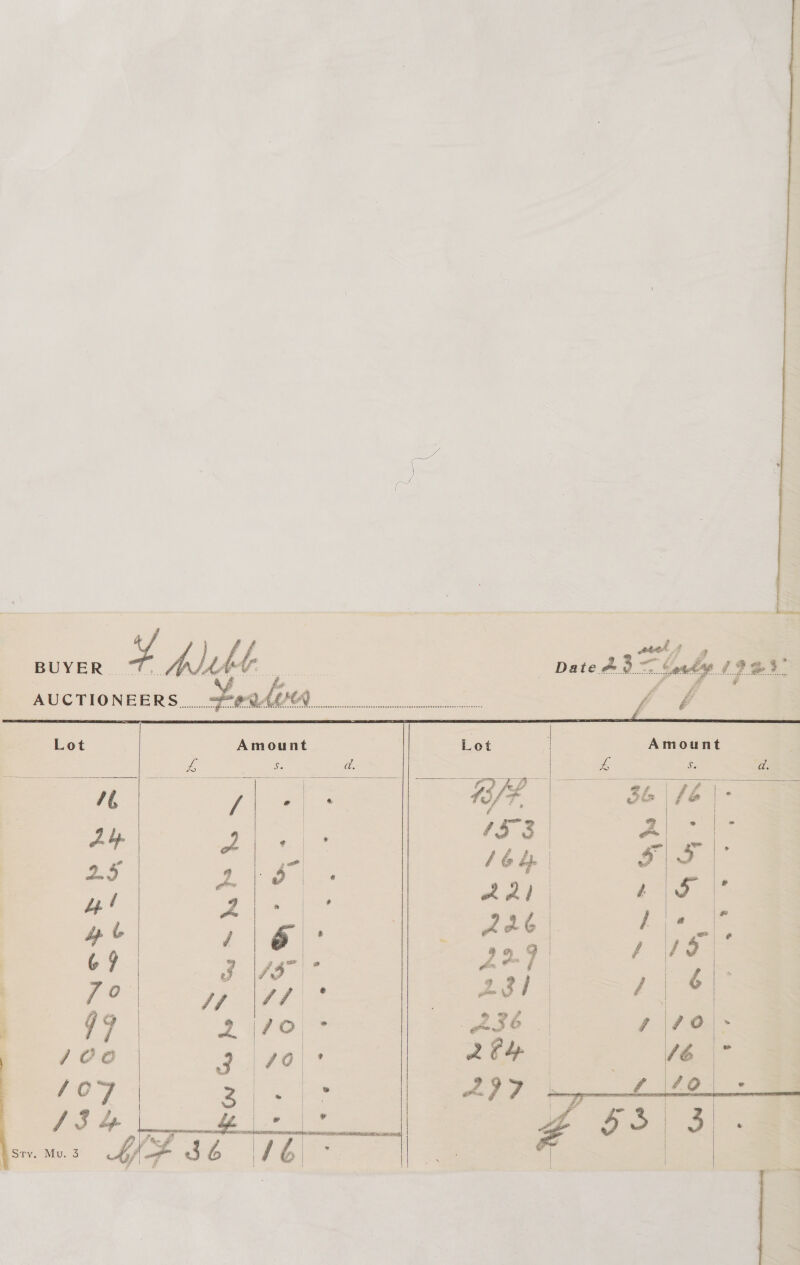 BUYER F. Webb Date 23 July 1923
AUCTIONEERS
Lot Amount Lot Amount
£ s. d. £ s. d.
16 1 - - B/F 36 16 -
24 2 - - 153 2 - -
25 2 5 - 164 5 5 -
41 2 - - 221 1 5 -
46 1 6 - 226 1 - -
69 3 15 - 229 1 15 -
70 11 11 - 231 1 6 -
99 2 10 - 236 1 10 -
100 3 10 - 284 16 -
107 3 - - 297 1 10 -
134 4 - - £ 53 3 -
Sty. Mu. 3 C/F 36 16 -